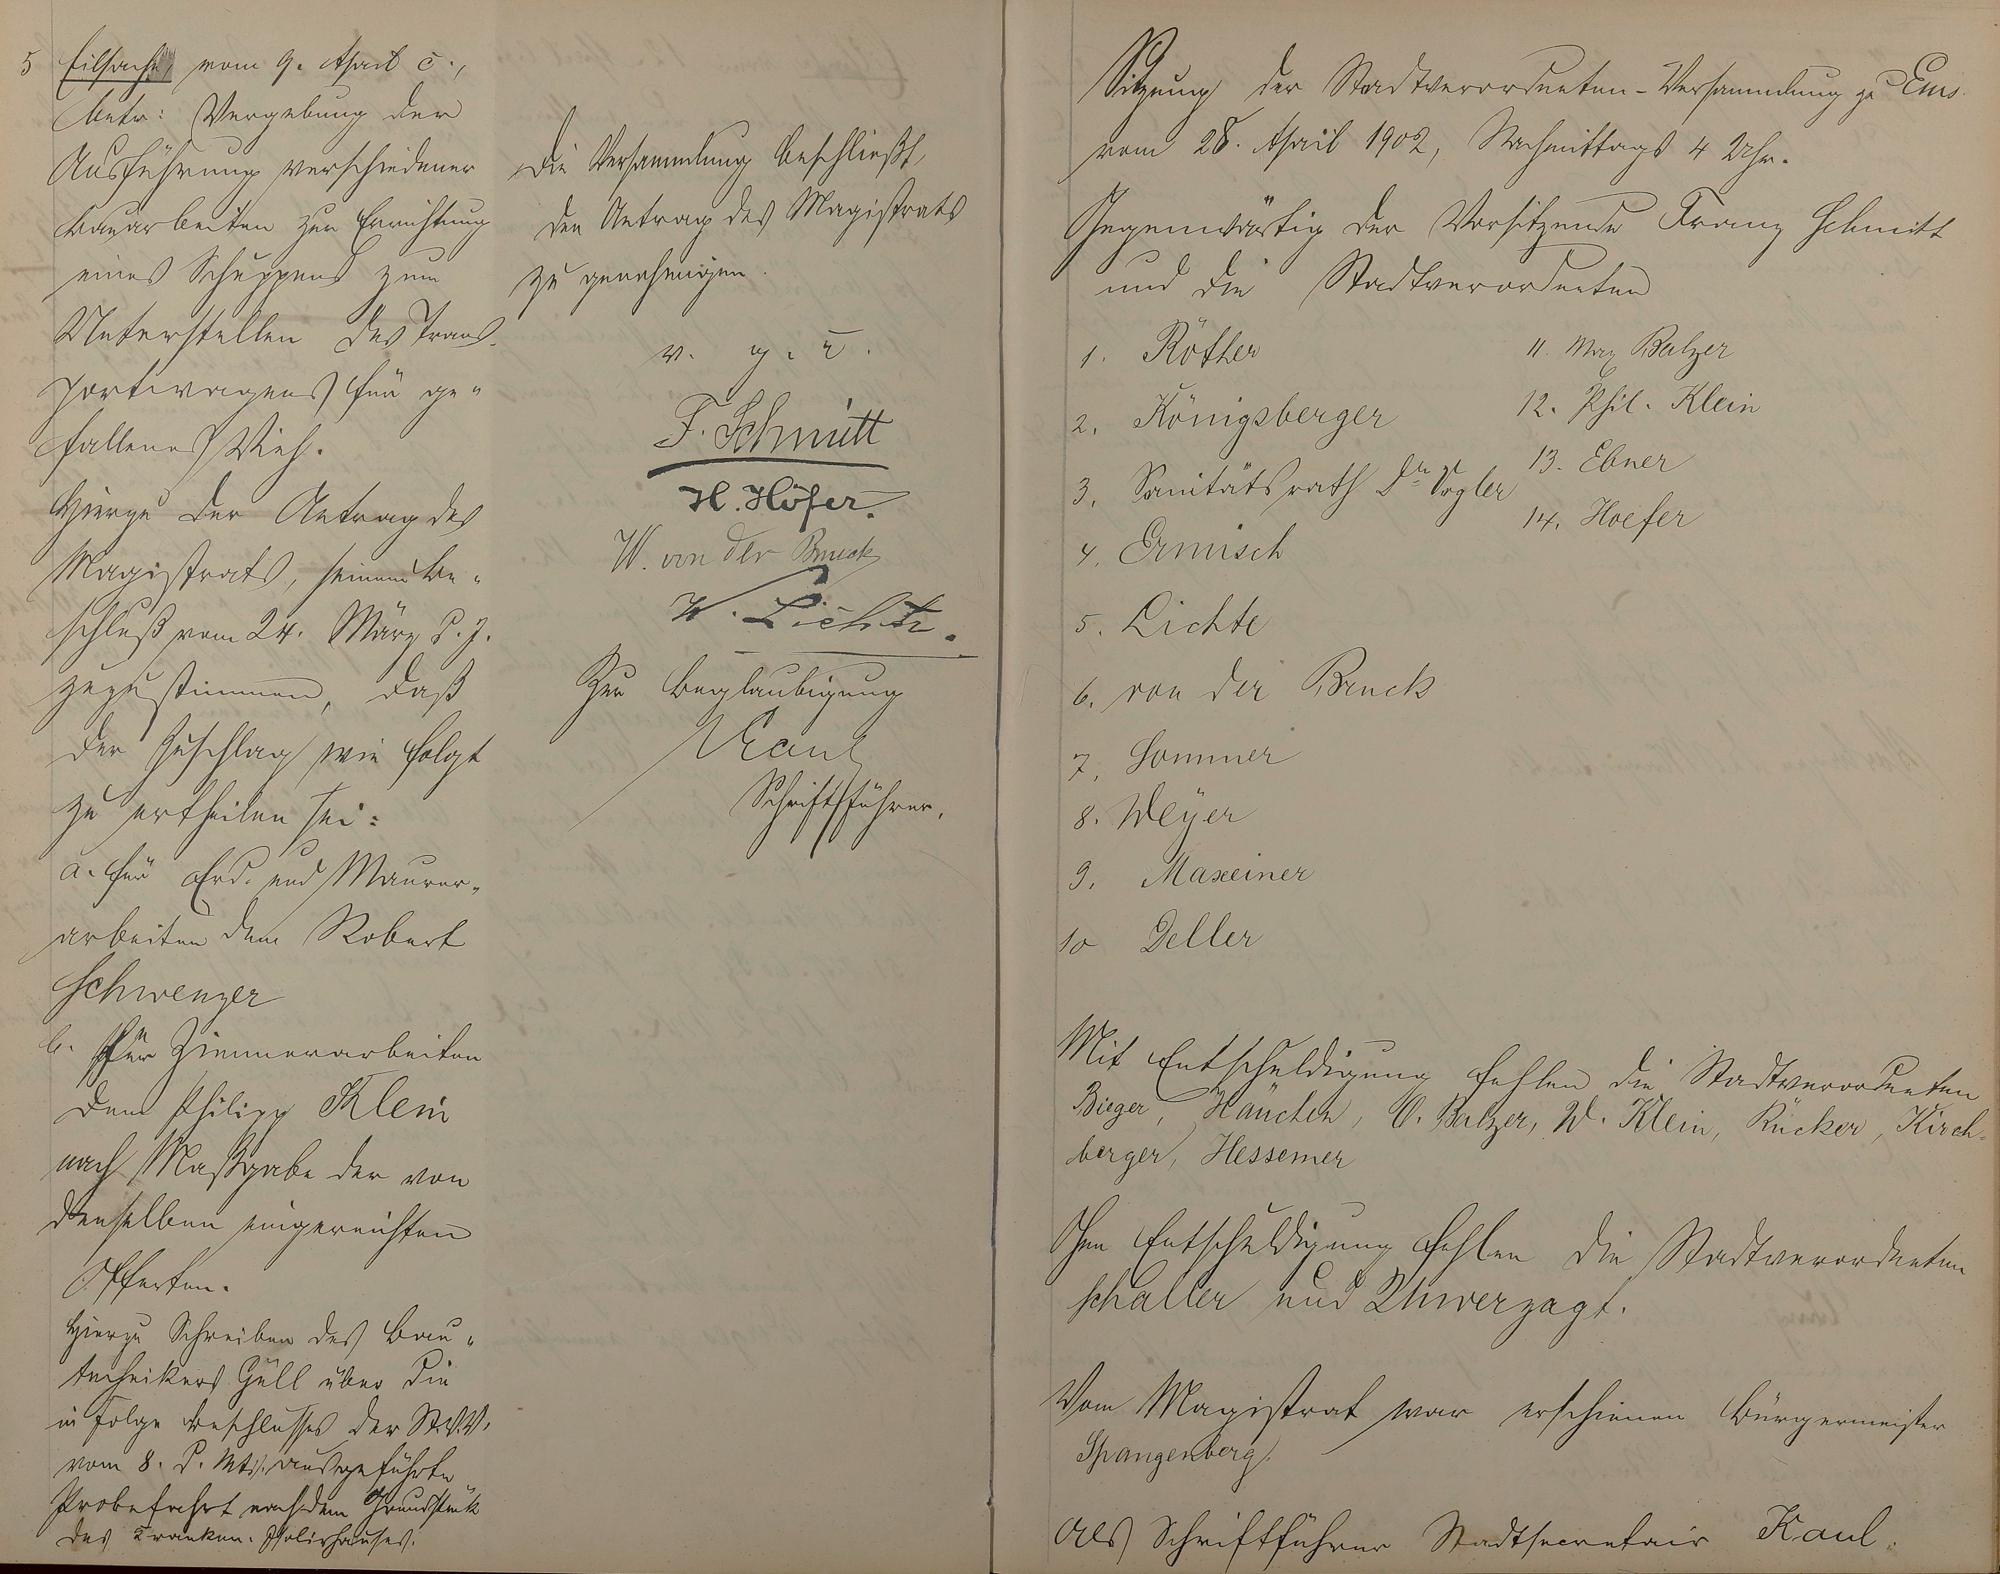 5 Eilsache vom 9. April c.,
betr: Vergebung der
Ausführung verschiedener
Bauarbeiten zur Errichtung
eines Schuppens zum
Unterstellen des Trans-
portwagens für ge-
fallenes Vieh.
Hierzu der Antrag des
Magistrats, seinem Be-
schluß vom 24. März d. J.
zuzustimmen, daß
der Zuschlag wie folgt
zu ertheilen sei:
a. für Erd- und Maurer-
arbeiten dem Robert
Schwenzer
b. Für Zimmerarbeiten
dem Philipp Klein
nach Maßgabe der von
denselben eingereichten
Offerten.
Hierzu Schreiben des Bau-
technikers Güll über die
in Folge Beschlusses der St.V.V.
vom 8. d. Mts. ausgeführte
Probefahrt nach dem Grundstück
des Kranken-Isolirhauses.
Die Versammlung beschließt,
den Antrag des Magistrats
zu genehmigen.
v. g. u.
F. Schmitt
H. Höfer.
W. von der Bruck
W. Lichte.
Zur Beglaubigung
Kaul
Schriftführer.
Sitzung der Stadtverordneten-Versammlung zu Ems.
vom 28. April 1902, Nachmittags 4 Uhr.
Gegenwärtig der Vorsitzende Franz Schmitt
und die Stadtverordneten
1. Röther
2. Königsberger
3. Sanitätsrath Dr. Vogler
4. Ermisch
5. Lichte
6. von der Bruck
7. Sommer
8. Weyer
9. Maxeiner
10 Deller
11. Max Balzer
12. Phil. Klein
13. Ebner
14. Hoefer
Mit Entschuldigung fehlen die Stadtverordneten
Bieger, Häuchen, O. Balzer, W. Klein, Rücker, Kirch-
berger, Hessemer
Ohne Entschuldigung fehlen die Stadtverordneten
Schaller und Unverzagt.
Vom Magistrat war erschienen Bürgermeister
Spangenberg.
Als Schriftführer Stadtsecretair Kaul.